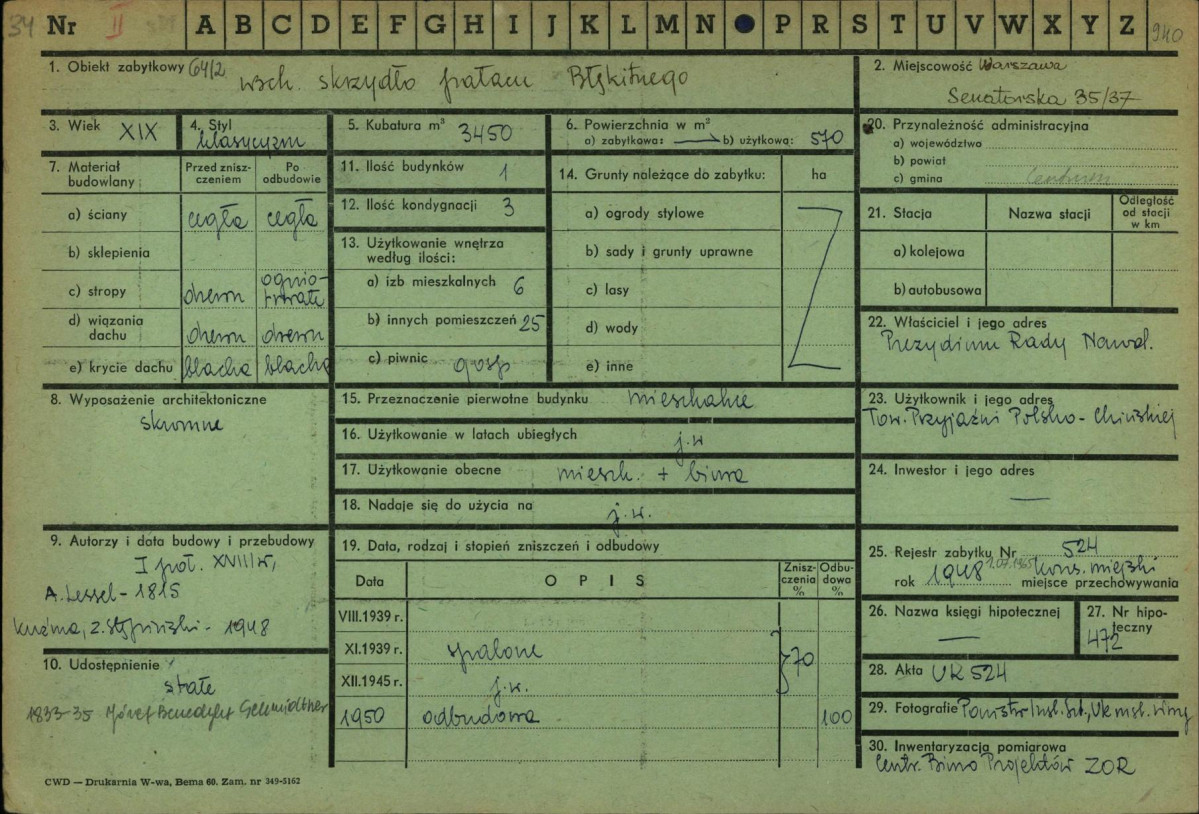 34 Nr II A B C D E F G H I J K L M N P R S T U V W X Y Z 940
1. Obiekt zabytkowy 64/2
wsch. skrzydło pałacu Błękitnego
2. Miejscowość Warszawa
Senatorska 35/37
3. Wiek XIX
4. Styl klasycyzm
5. Kubatura m³ 3450
6. Powierzchnia w m²
a) zabytkowa: — b) użytkowa: 570
20. Przynależność administracyjna
a) województwo
b) powiat
c) gmina Centrum
7. Materiał budowlany
Przed zniszczeniem
Po odbudowie
a) ściany cegła cegła
b) sklepienia
c) stropy drewn ogniotrwałe
d) wiązania dachu drewn drewn
e) krycie dachu blacha blacha
11. Ilość budynków 1
12. Ilość kondygnacji 3
13. Użytkowanie wnętrza według ilości:
a) izb mieszkalnych 6
b) innych pomieszczeń 25
c) piwnic gosp
14. Grunty należące do zabytku: ha
a) ogrody stylowe
b) sady i grunty uprawne
c) lasy
d) wody
e) inne
21. Stacja Nazwa stacji Odległość od stacji w km
a) kolejowa
b) autobusowa
22. Właściciel i jego adres
Prezydium Rady Narod.
8. Wyposażenie architektoniczne
skromne
15. Przeznaczenie pierwotne budynku mieszkalne
16. Użytkowanie w latach ubiegłych j.w
17. Użytkowanie obecne mieszk. + biura
18. Nadaje się do użycia na j.w.
23. Użytkownik i jego adres
Tow. Przyjaźni Polsko-Chińskiej
24. Inwestor i jego adres
—
9. Autorzy i data budowy i przebudowy
I poł. XVIII w,
A. Lessel - 1815
Kuźma, Z. Stępiński - 1948
10. Udostępnienie
stałe
1833-35 Józef Benedykt Schmidtner
19. Data, rodzaj i stopień zniszczeń i odbudowy
Data OPIS Zniszczenia % Odbudowa %
VIII.1939 r.
XI.1939 r. spalone 70
XII.1945 r. j.w.
1950 odbudowa 100
25. Rejestr zabytku Nr 524
rok 1948 1.07.1965 kons. miejski
miejsce przechowywania
26. Nazwa księgi hipotecznej
—
27. Nr hipoteczny
472
28. Akta UK 524
29. Fotografie
30. Inwentaryzacja pomiarowa
Centr. Biuro Projektów ZOR
CWD — Drukarnia W-wa, Bema 60. Zam. nr 349-5162